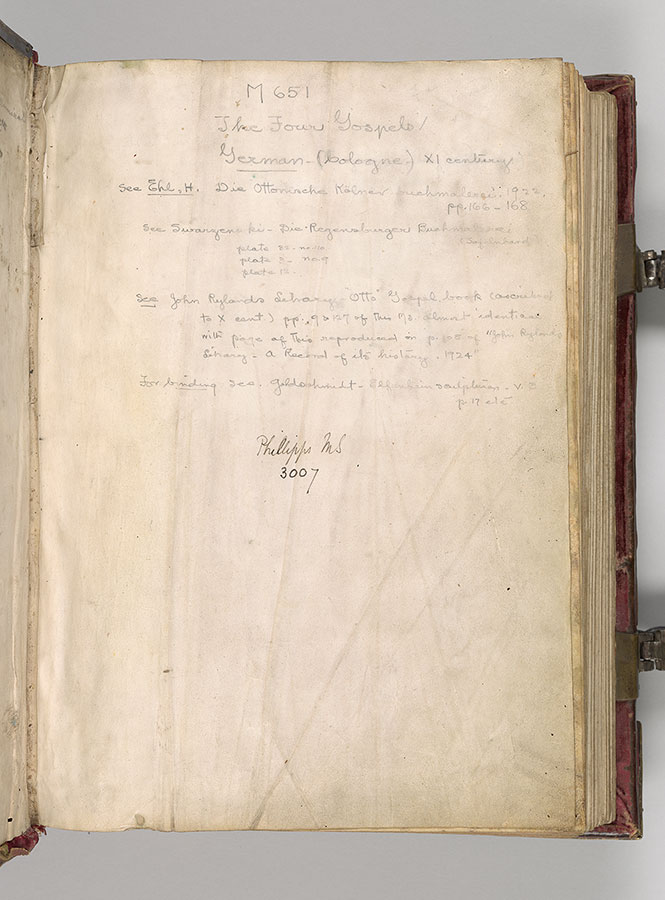 M 651
The Four Gospels
German - (Cologne.) XI century
See Ehl, H. Die Ottonische Kölner Buchmalerei. 1922.
pp. 166 - 168
See Swarzenski - Die Regensburger Buchmalerei
plate
plate no. 9
plate 12.
See John Rylands Library - "Otto" Gospel book (ascribed
to X cent) pp. 9 & 127 of this Ms. almost identical
with page of this reproduced in p. 105 of "John Rylands
Library - A Record of its history. 1924"
For binding see. Goldschmidt - Elfenbeinsculpturen - v.
p. 17 etc
Phillipps MS
3007